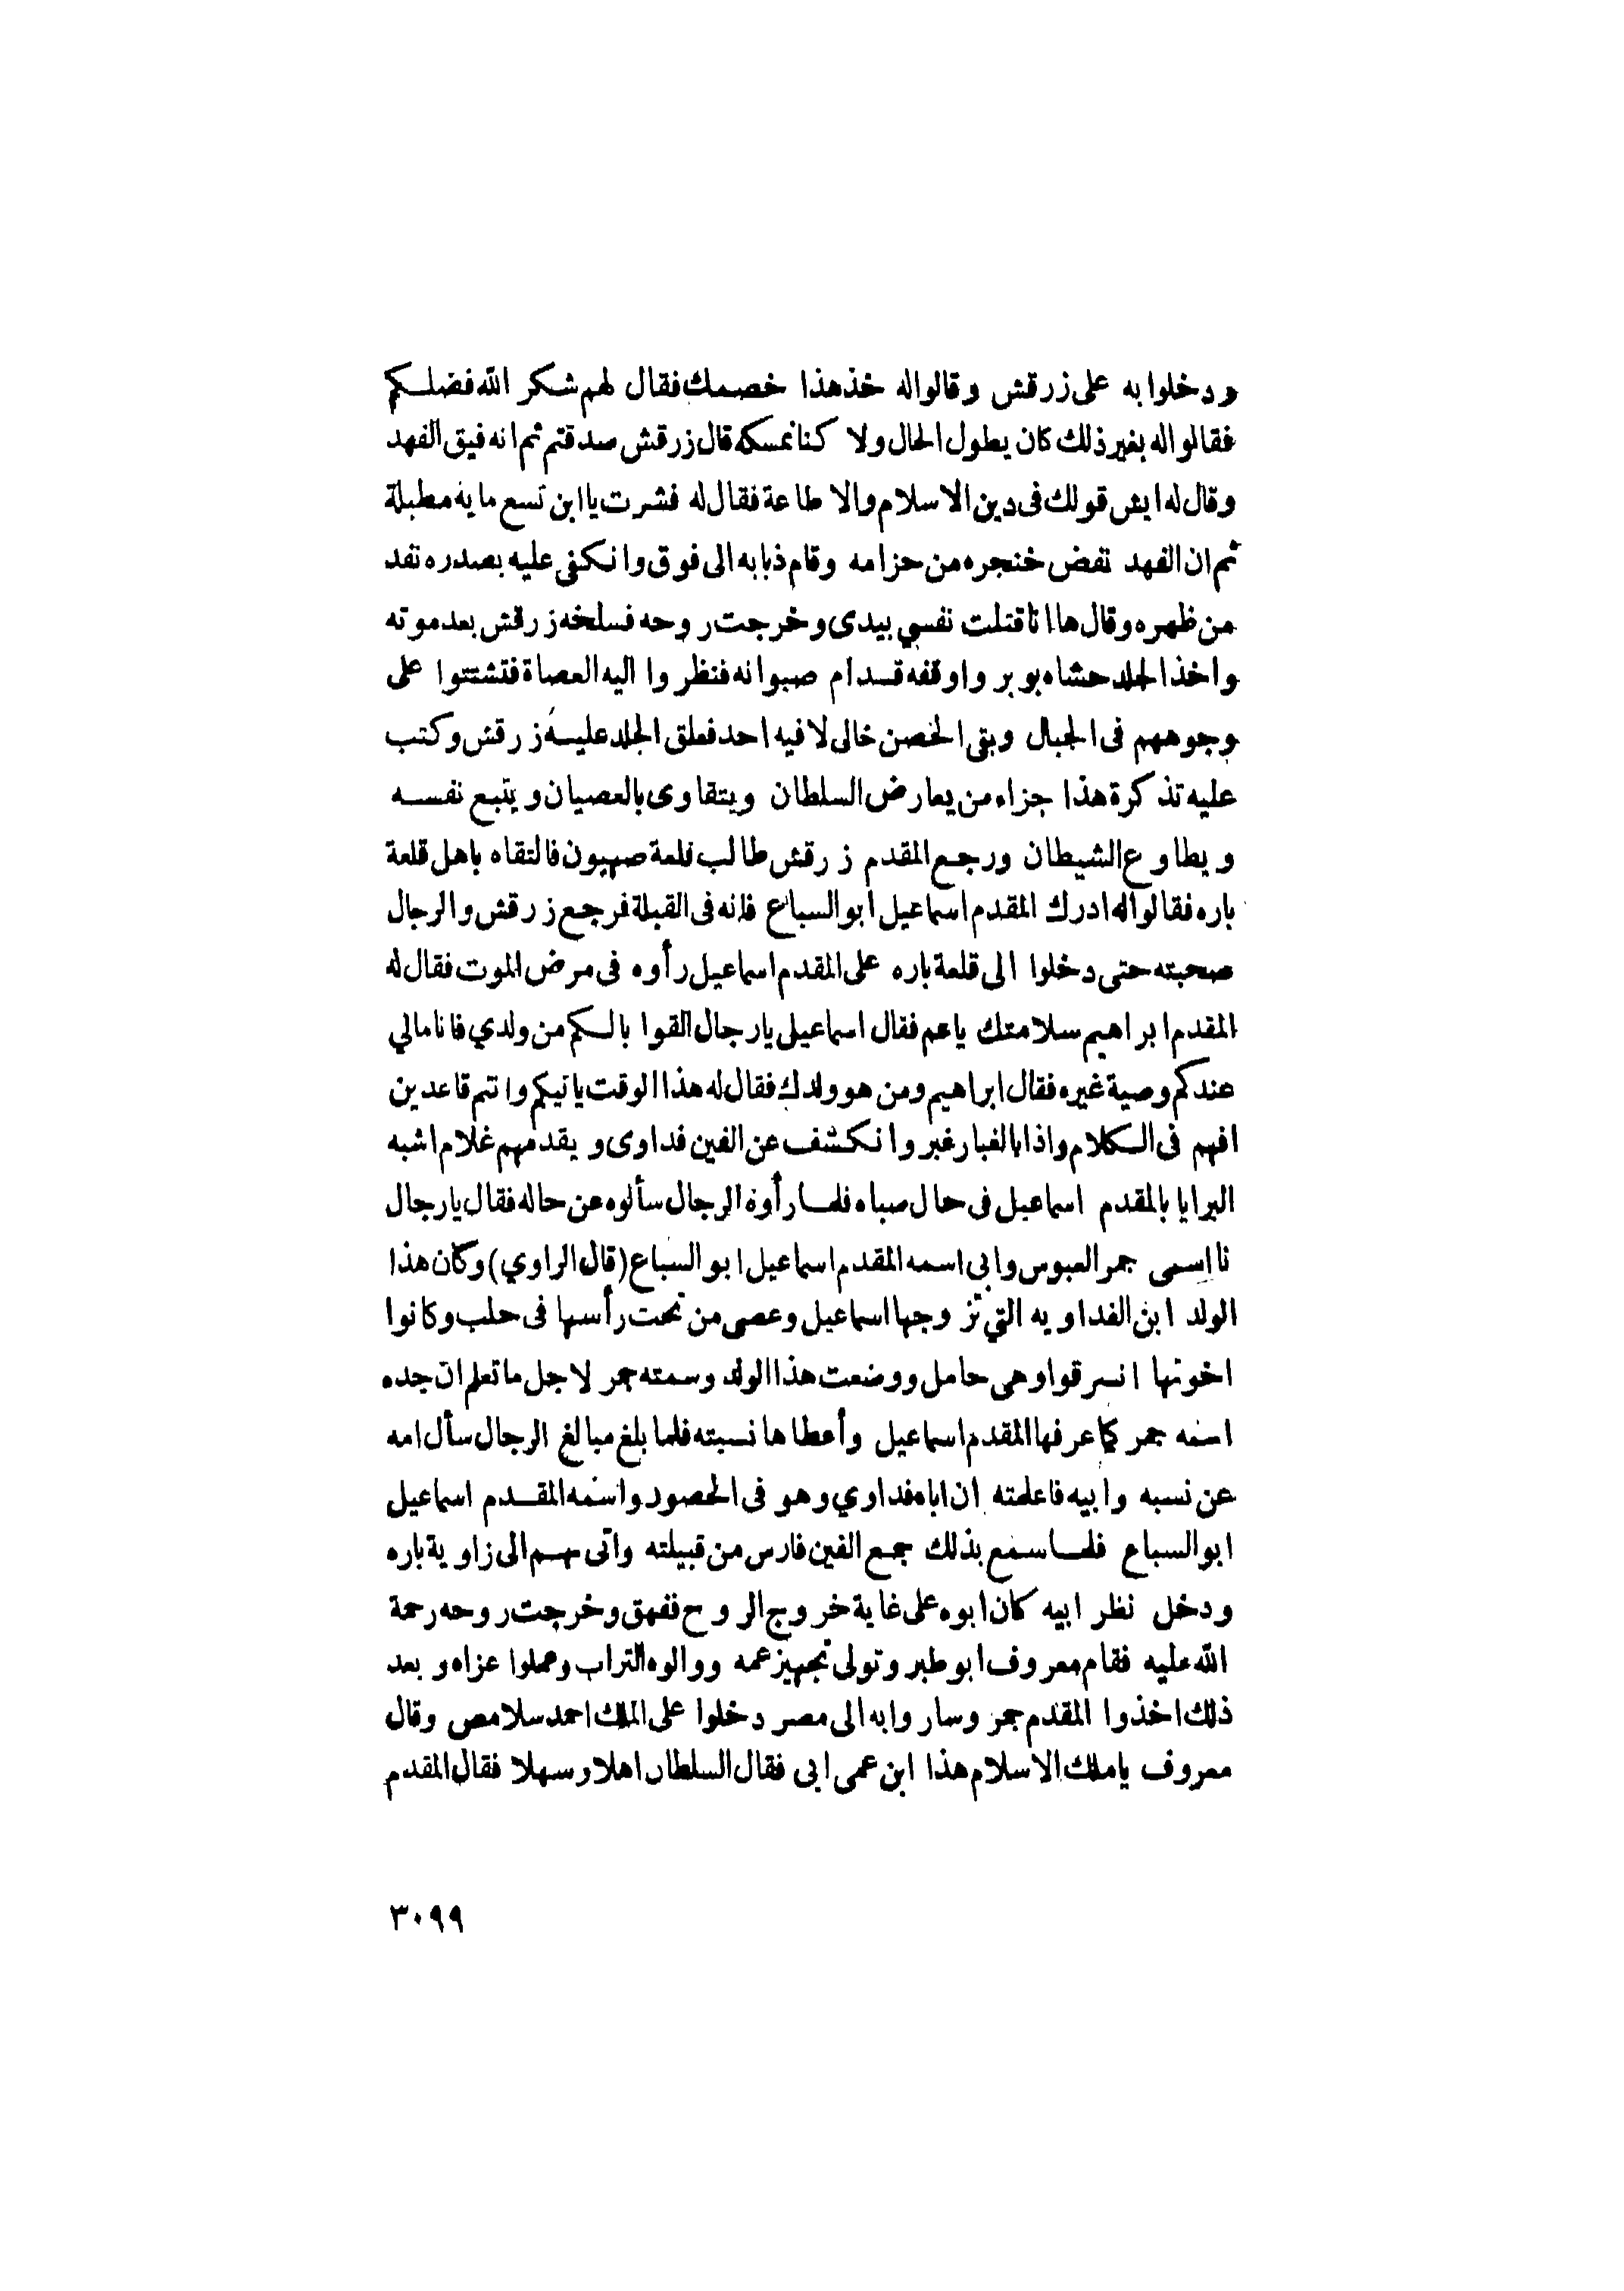 ودخلوا به على زرقش وقالوا له خذ هذا خصمك فقال لهم شكر الله فضلكم
فقالوا له بغير ذلك كان يطول الحال ولا كنا نمسكه قال زرقش صدقتم ثم انه فيق الفهد
وقال له ايش قولك فى دين الاسلام والا طاعة فقال له فشرت يا ابن تسع مايه مطبلة
ثم ان الفهد نفض خنجره من حزامه وقام ذبابه الى فوق وانكفى عليه بصدره نفد
من ظهره وقال ها انا قتلت نفسي بيدى وخرجت روحه فسلخه زرقش بعد موته
واخذ الجلد حشاه بوبر واوقفه قدام صبوانه فنظروا اليه العصاة فتشتتوا على
وجوههم فى الجبال وبقى الحصن خالى لا فيه احد فعلق الجلد عليه زرقش وكتب
عليه تذكرة هذا جزاء من يعارض السلطان ويتقاوى بالعصيان ويتبع نفسه
ويطاوع الشيطان ورجع المقدم زرقش طالب قلعة صهيون فالتقاه باهل قلعة
باره فقالوا له ادرك المقدم اسماعيل ابو السباع فانه فى القبلة فرجع زرقش والرجال
صحبته حتى دخلوا الى قلعة باره على المقدم اسماعيل رأوه فى مرض الموت فقال له
المقدم ابراهيم سلامتك ياعم فقال اسماعيل يارجال القوا بالكم من ولدي فانا مالي
عندكم وصية غيره فقال ابراهيم ومن هو ولدك فقال له هذا الوقت ياتيكم وانتم قاعدين
افهم فى الكلام واذا بالغبار غبر وانكشف عن الفين فداوى ويقدمهم غلام اشبه
البرايا بالمقدم اسماعيل فى حال صباه فلما رأوه الرجال سألوه عن حاله فقال يارجال
نا اسمى جمر العبوس وابى اسمه المقدم اسماعيل ابو السباع (قال الراوي) وكان هذا
الولد ابن الفداويه التي تزوجها اسماعيل وعصى من تحت رأسها فى حلب وكانوا
اخوتها انسرقوا وهى حامل ووضعت هذا الولد وسمته جمر لاجل ما تعلم ان جده
اسمه جمر كما عرفها المقدم اسماعيل وأعطاها نسبته فلما بلغ مبالغ الرجال سأل امه
عن نسبه وابيه فاعلمته ان اباه فداوي وهو فى الحصود واسمه المقدم اسماعيل
ابو السباع فلما سمع بذلك جمع الفين فارس من قبيلته واتى بهم الى زاوية باره
ودخل نظر ابيه كان ابوه على غاية خروج الروح ففهق وخرجت روحه رحمة
الله عليه فقام معروف ابو طبر وتولى تجهيز عمه ووالوه التراب وعملوا عزاه وبعد
ذلك اخذوا المقدم جمر وساروا به الى مصر دخلوا على الملك احمد سلامص وقال
معروف ياملك الاسلام هذا ابن عمى ابى فقال السلطان اهلا وسهلا فقال المقدم
٣٠٩٩